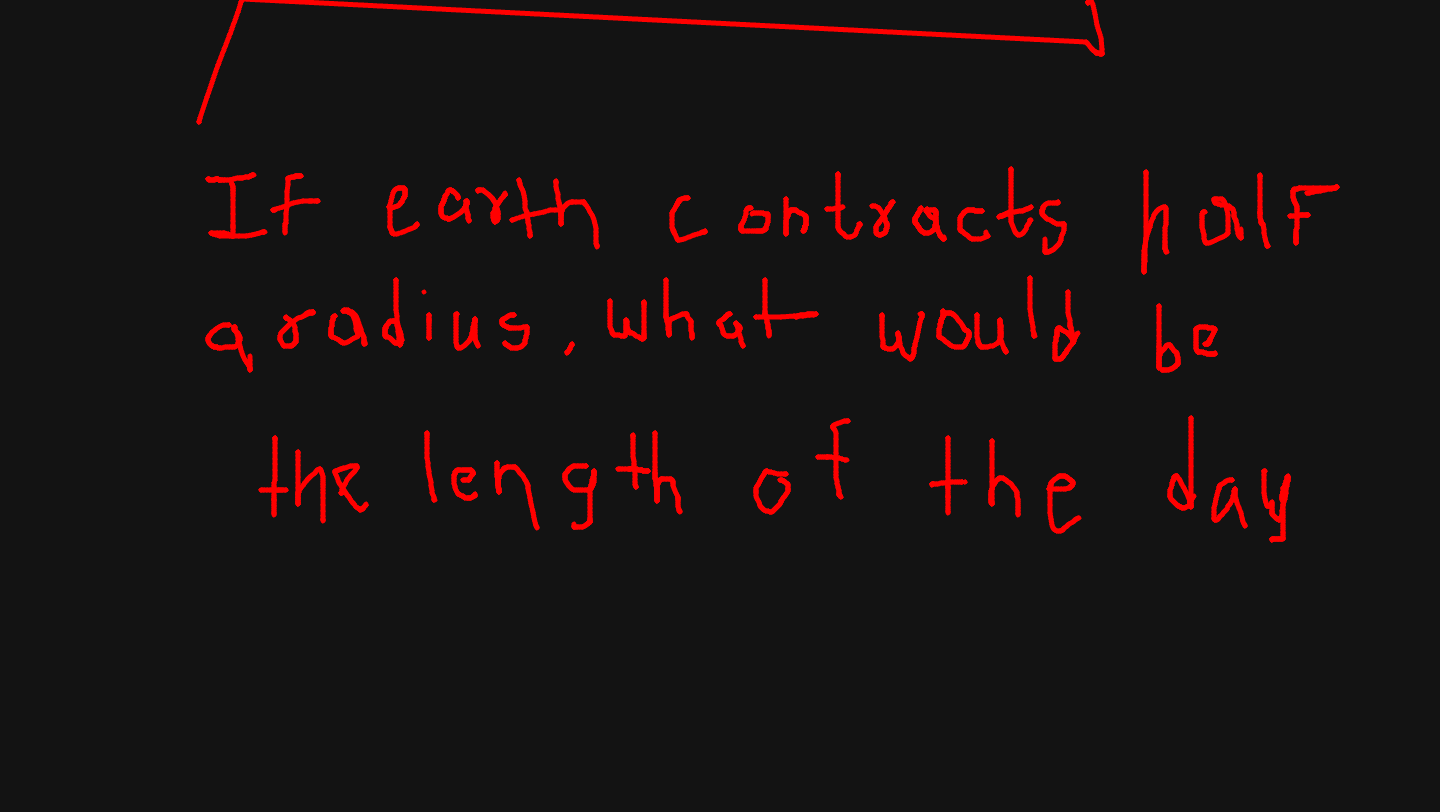 If earth contracts half
a radius, what would be
the length of the day